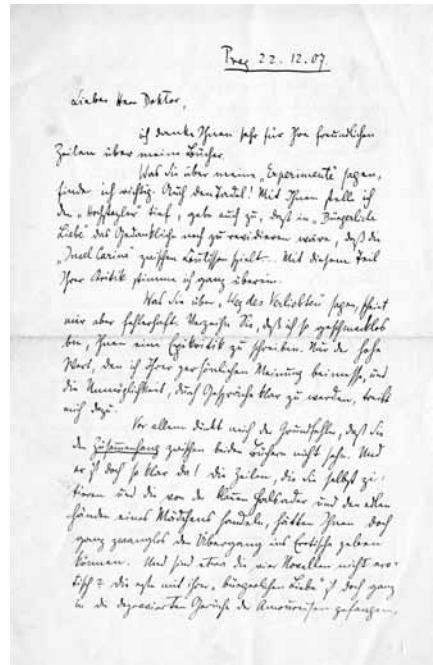 Prag 22. 12. 07.
Lieber Herr Doktor,
ich danke Ihnen sehr für Ihre freundlichen
Zeilen über meine Bücher.
Was Sie über meine „Experimente" sagen,
finde ich richtig. Auch den Tadel! Mit Ihnen stelle ich
den „Hochstapler" tief, gebe auch zu, daß in „Bürgerliche
Liebe" das Gedankliche noch zu revidieren wäre, daß die
„Insel Carina" zwischen Coulissen spielt. Mit diesem Teil
Ihrer Kritik stimme ich ganz überein.
Was Sie über „Weg des Verliebten" sagen, scheint
mir aber fehlerhaft. Verzeihn Sie, daß ich so geschmacklos
bin, Ihnen eine Epikritik zu schreiben. Nur der hohe
Wert, den ich Ihrer persönlichen Meinung beimesse, und
die Unmöglichkeit, durch Gespräche klar zu werden, treibt
mich dazu.
Vor allem dünkt mich der Grundfehler, daß Sie
den Zusammenhang zwischen beiden Büchern nicht sehn. Und
er ist doch so klar da! Die Zeilen, die Sie selbst zi-
tieren und die von der blauen Halsader und den edlen
Händen eines Mädchens handeln, hätten Ihnen doch
ganz zwanglos den Übergang ins Erotische geben
können. Und sind etwa die vier Novellen nicht ero-
tisch? Die erste mit ihrer „bürgerlichen Liebe" ist doch ganz
in die depravierten Gerüche der Amoureusen gefangen,